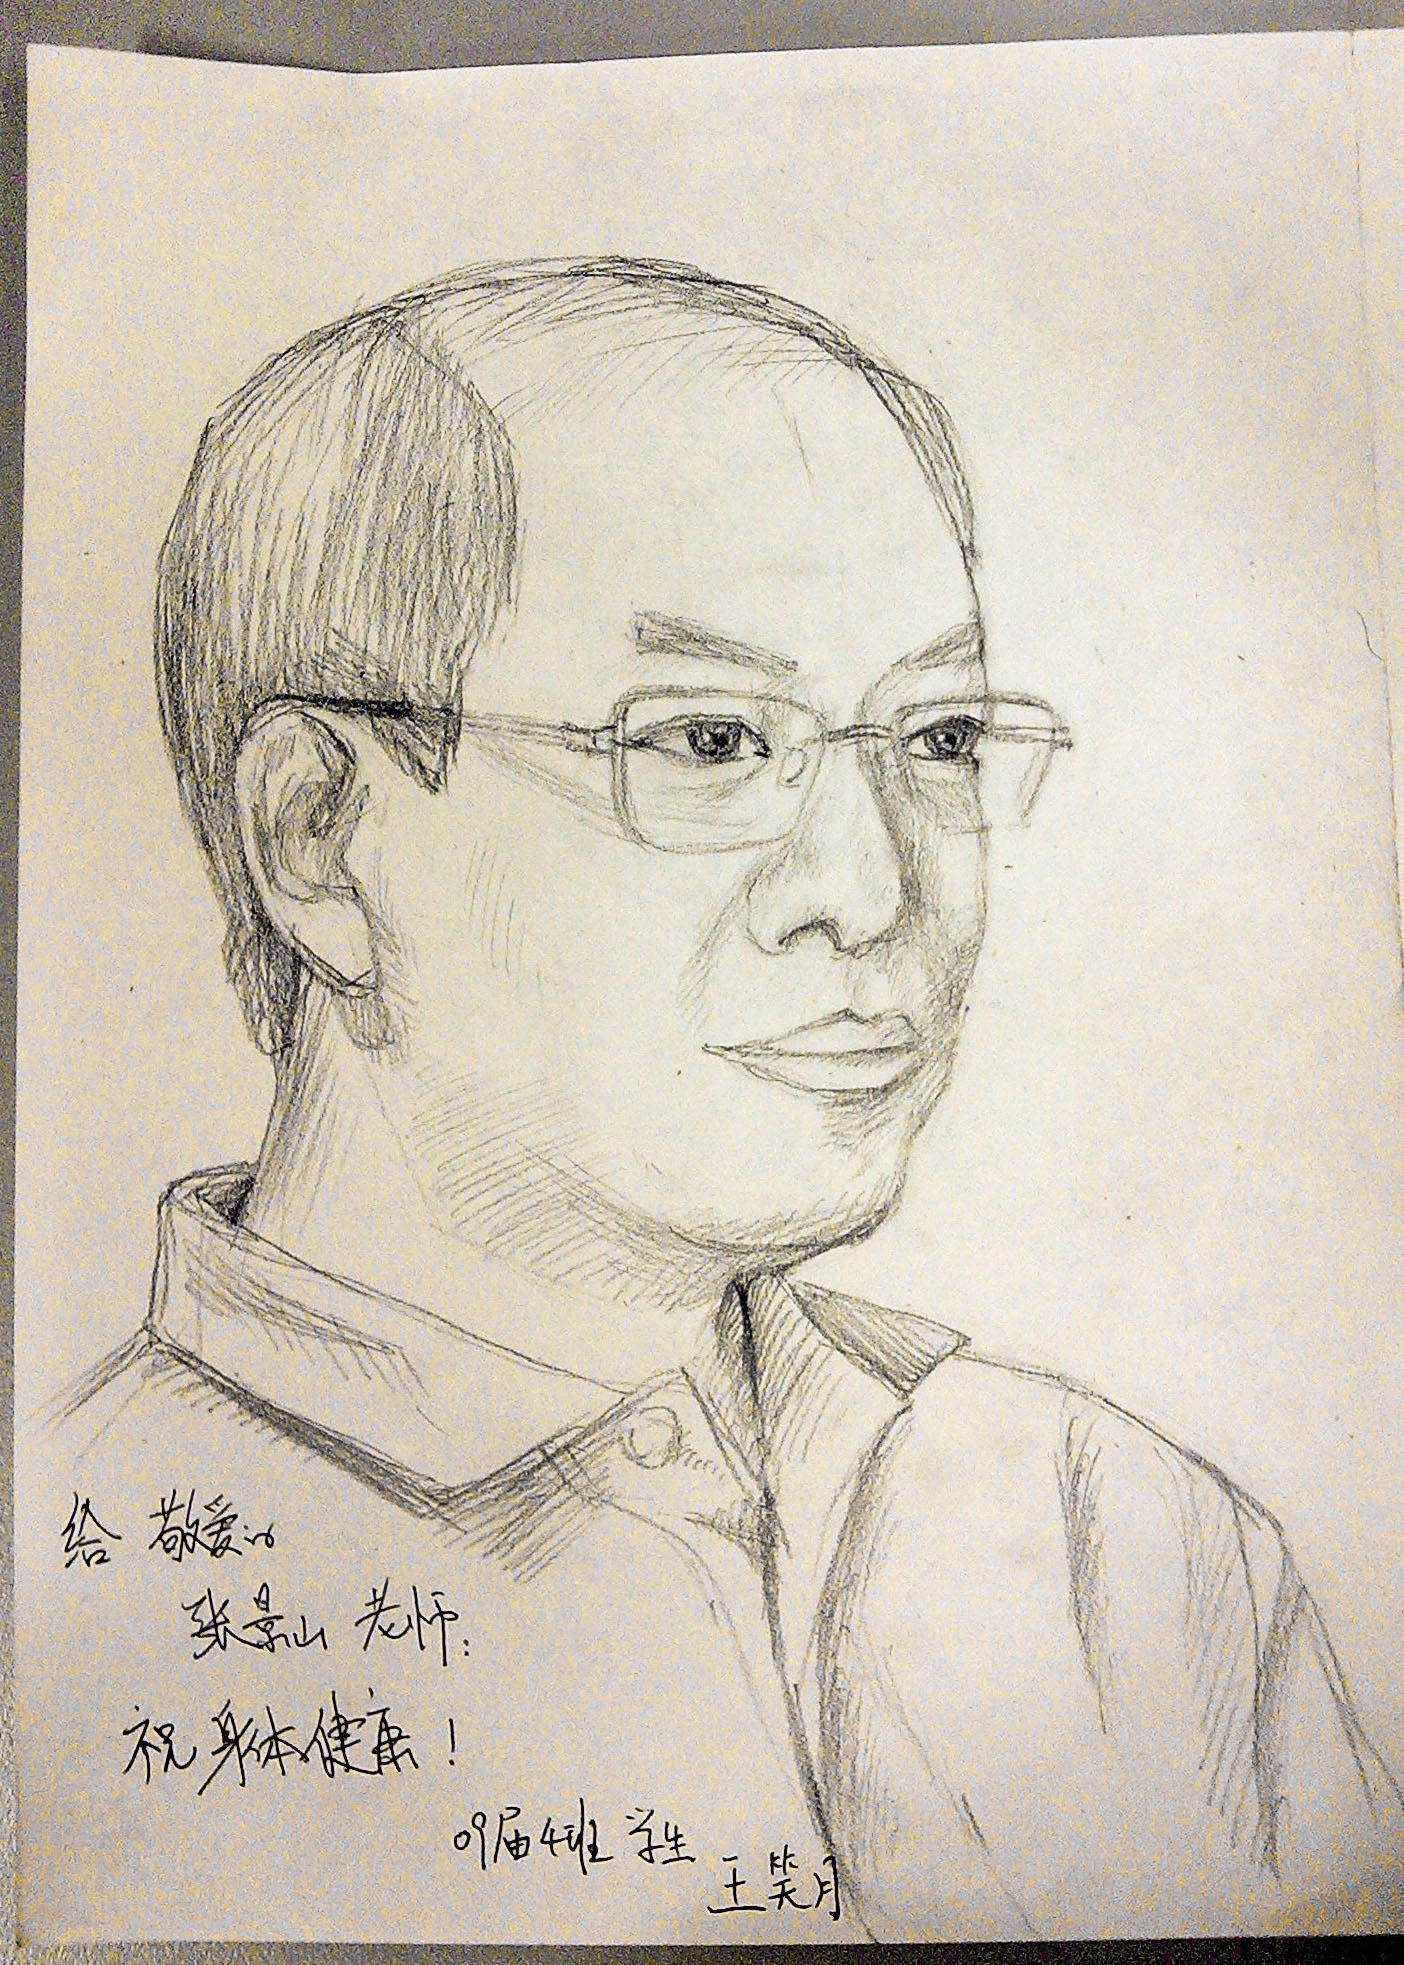 给 敬爱的
张景山 老师:
祝 身体健康！
09届4班 学生
王笑月